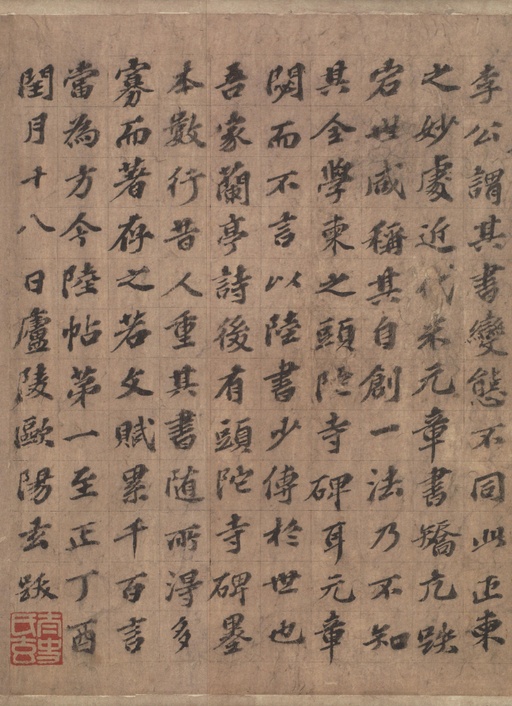 李公謂其書變態不同此正柬
之妙處近代米元章書矯亢跌
宕世咸稱其自創一法乃不知
其全學柬之頭陀寺碑耳元章
閟而不言以陸書少傳於世也
吾家蘭亭詩後有頭陀寺碑墨
本數行昔人重其書随所得多
寡而著存之若文賦累千百言
當為方今陸帖第一至正丁酉
閏月十八日廬陵歐陽玄跋